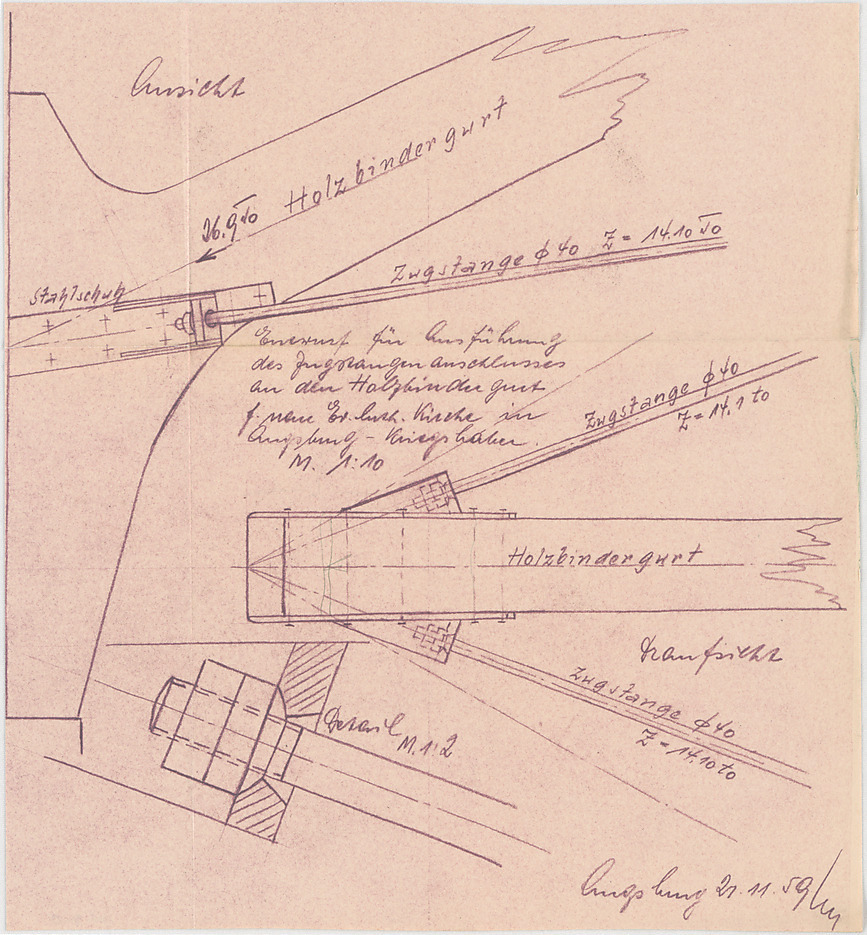 Ansicht
26.9 to Holzbindergurt
Zugstange ϕ 40 Z = 14.10 to
Stahlschuh
Entwurf für Ausführung
des Zugstangenanschlusses
an den Holzbindergurt
f. neue Ev. luth. Kirche in
Augsburg - Kriegshaber.
M. 1:10
Zugstange ϕ 40
Z = 14.1 to
Holzbindergurt
Draufsicht
Zugstange ϕ 40
Z = 14.10 to
Detail
M. 1:2
Augsburg 21.11.59